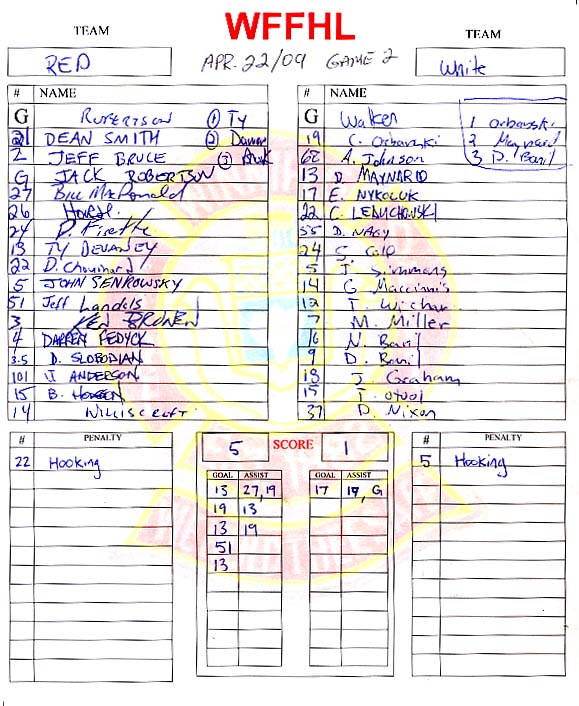 WFFHL
TEAM
TEAM
RED
APR. 22/09 GAME 2
White
# NAME
G ROBERTSON ① Ty
21 DEAN SMITH ②
2 JEFF BRUCE ③
G JACK ROBERTSON
27 Bill MacDonald
26
24
13 TY DEVANEY
22 D. Chouinard
5 JOHN SENKOWSKY
51 Jeff Landels
3 KEN BRONEN
4 DARREN FEDYCK
35 D. SLOBODIAN
101 J ANDERSON
15 B.
14 WILLISCROFT
# NAME
G Walker
19 C. Orbanski
68 A. Johnson
13 D. MAYNARD
17 E. NYKOLUK
22 C. LEDUCHOWSKI
55 D. NAGY
24 S.
5 J. Simmons
14 G Maccinnis
12 T. Wichar
7 M. Miller
16 N. Baril
9 D. Baril
18 J. Graham
15 T. otool
37 D. Nixon
1 Orbanski
2 Maynard
3 D. Baril
# PENALTY
22 Hooking
5 SCORE 1
GOAL ASSIST
13 27,19
19 13
13 19
51
13
GOAL ASSIST
17 19, G
# PENALTY
5 Hooking